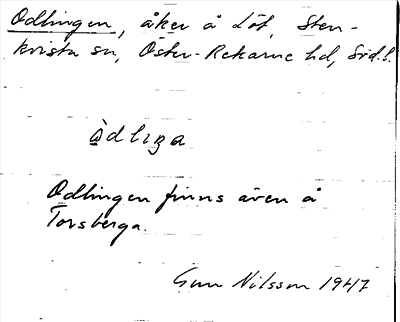 Odlingen, åker å Löt, Sten-
kvista sn, Öster-Rekarne hd, Söd.l.
òdlıŋa
Odlingen finns även å
Torsberga.
Gun Nilsson 1947